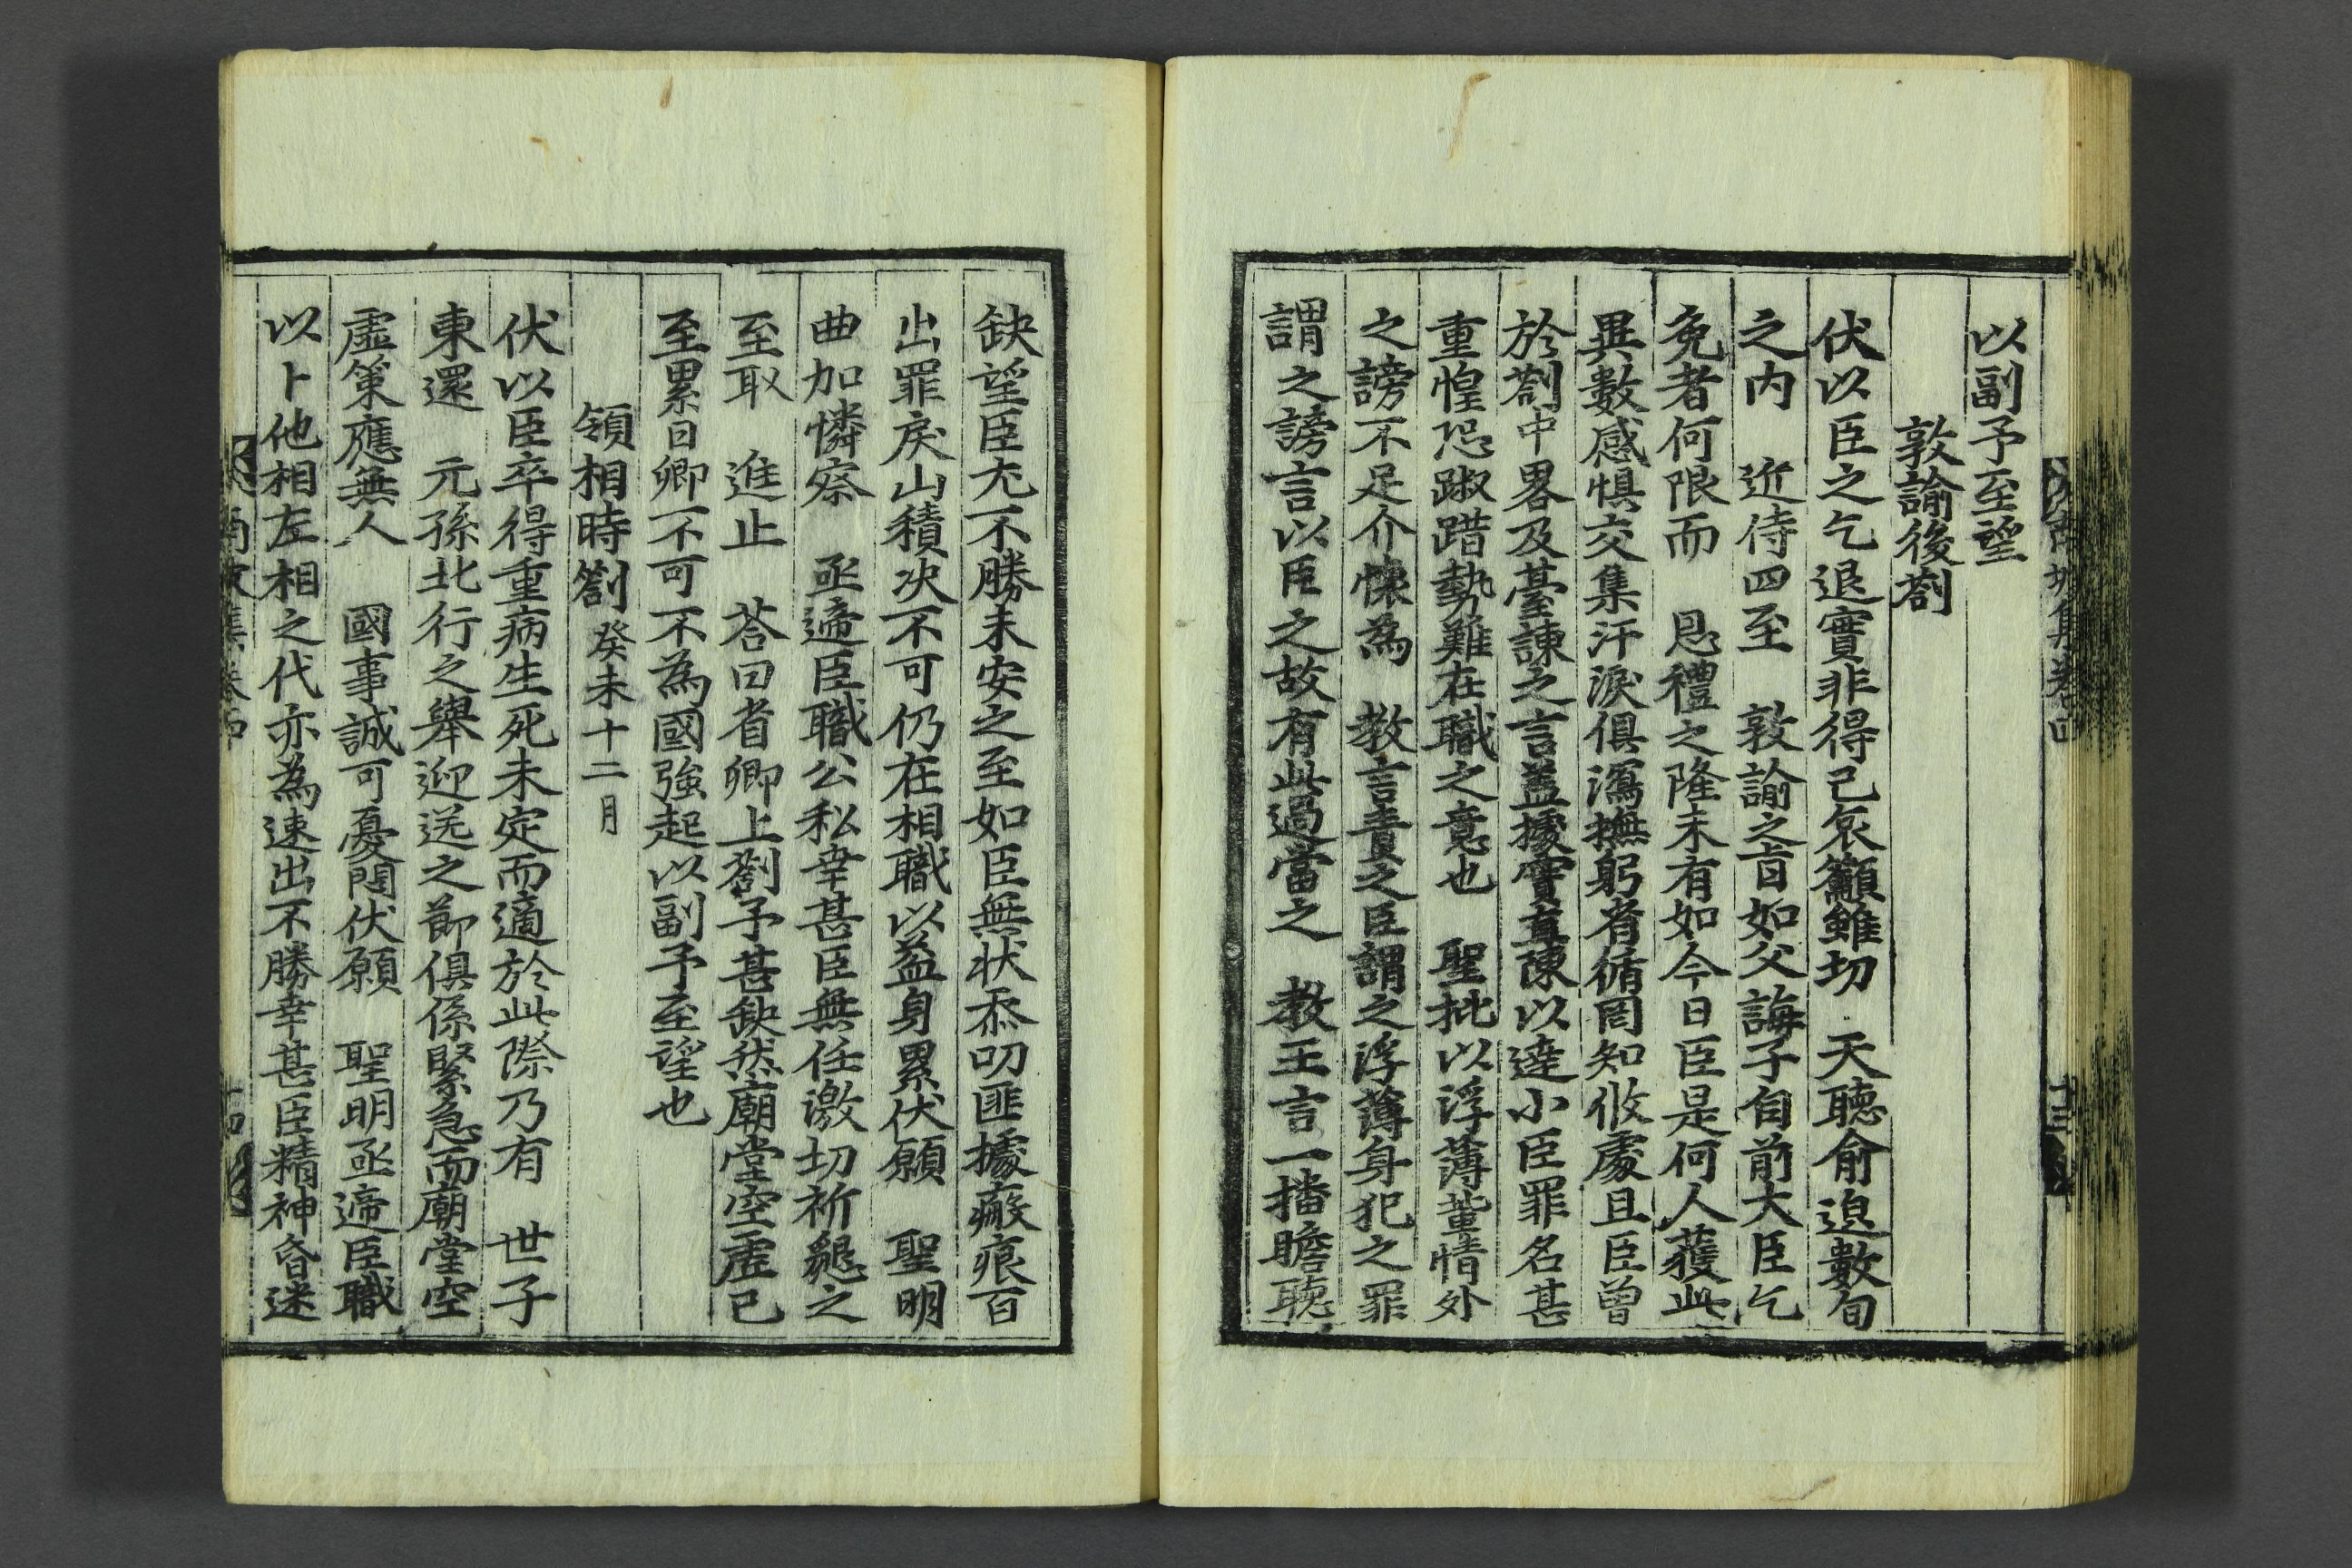 以副予至望
敦諭後劄
伏以臣之乞退實非得已哀籲雖切 天聽俞邈數旬
之内 近侍四至 敦諭之旨如父誨子自前大臣乞
免者何限而 恩禮之隆未有如今日臣是何人獲此
異數感惧交集汗淚俱瀉撫躬省循罔知攸處且臣曽
於劄中畧及䑓諫之言盖據實直陳以達小臣罪名甚
重惶恐踧踖勢難在職之意也 聖批以浮薄輩情外
之謗不足介懷為 教言責之臣謂之浮薄身犯之罪
謂之謗言以臣之故有此過當之 教王言一播瞻聽
缺望臣尤不勝未安之至如臣無状忝叨匪據瘢痕百
出罪戾山積决不可仍在相職以益身累伏願 聖明
曲加憐察 亟遞臣職公私幸甚臣無任激切祈懇之
至取 進止 荅曰省卿上劄予甚缺然廟堂空虛已
至累日卿不可不為國強起以副予至望也
領相時劄 癸未十二月
伏以臣卒得重病生死未定而適於此際乃有 世子
東還 元孫北行之舉迎送之節俱係緊急而廟堂空
虛策應無人 國事誠可憂悶伏願 聖明亟遞臣職
以卜他相左相之代亦為速出不勝幸甚臣精神昏迷